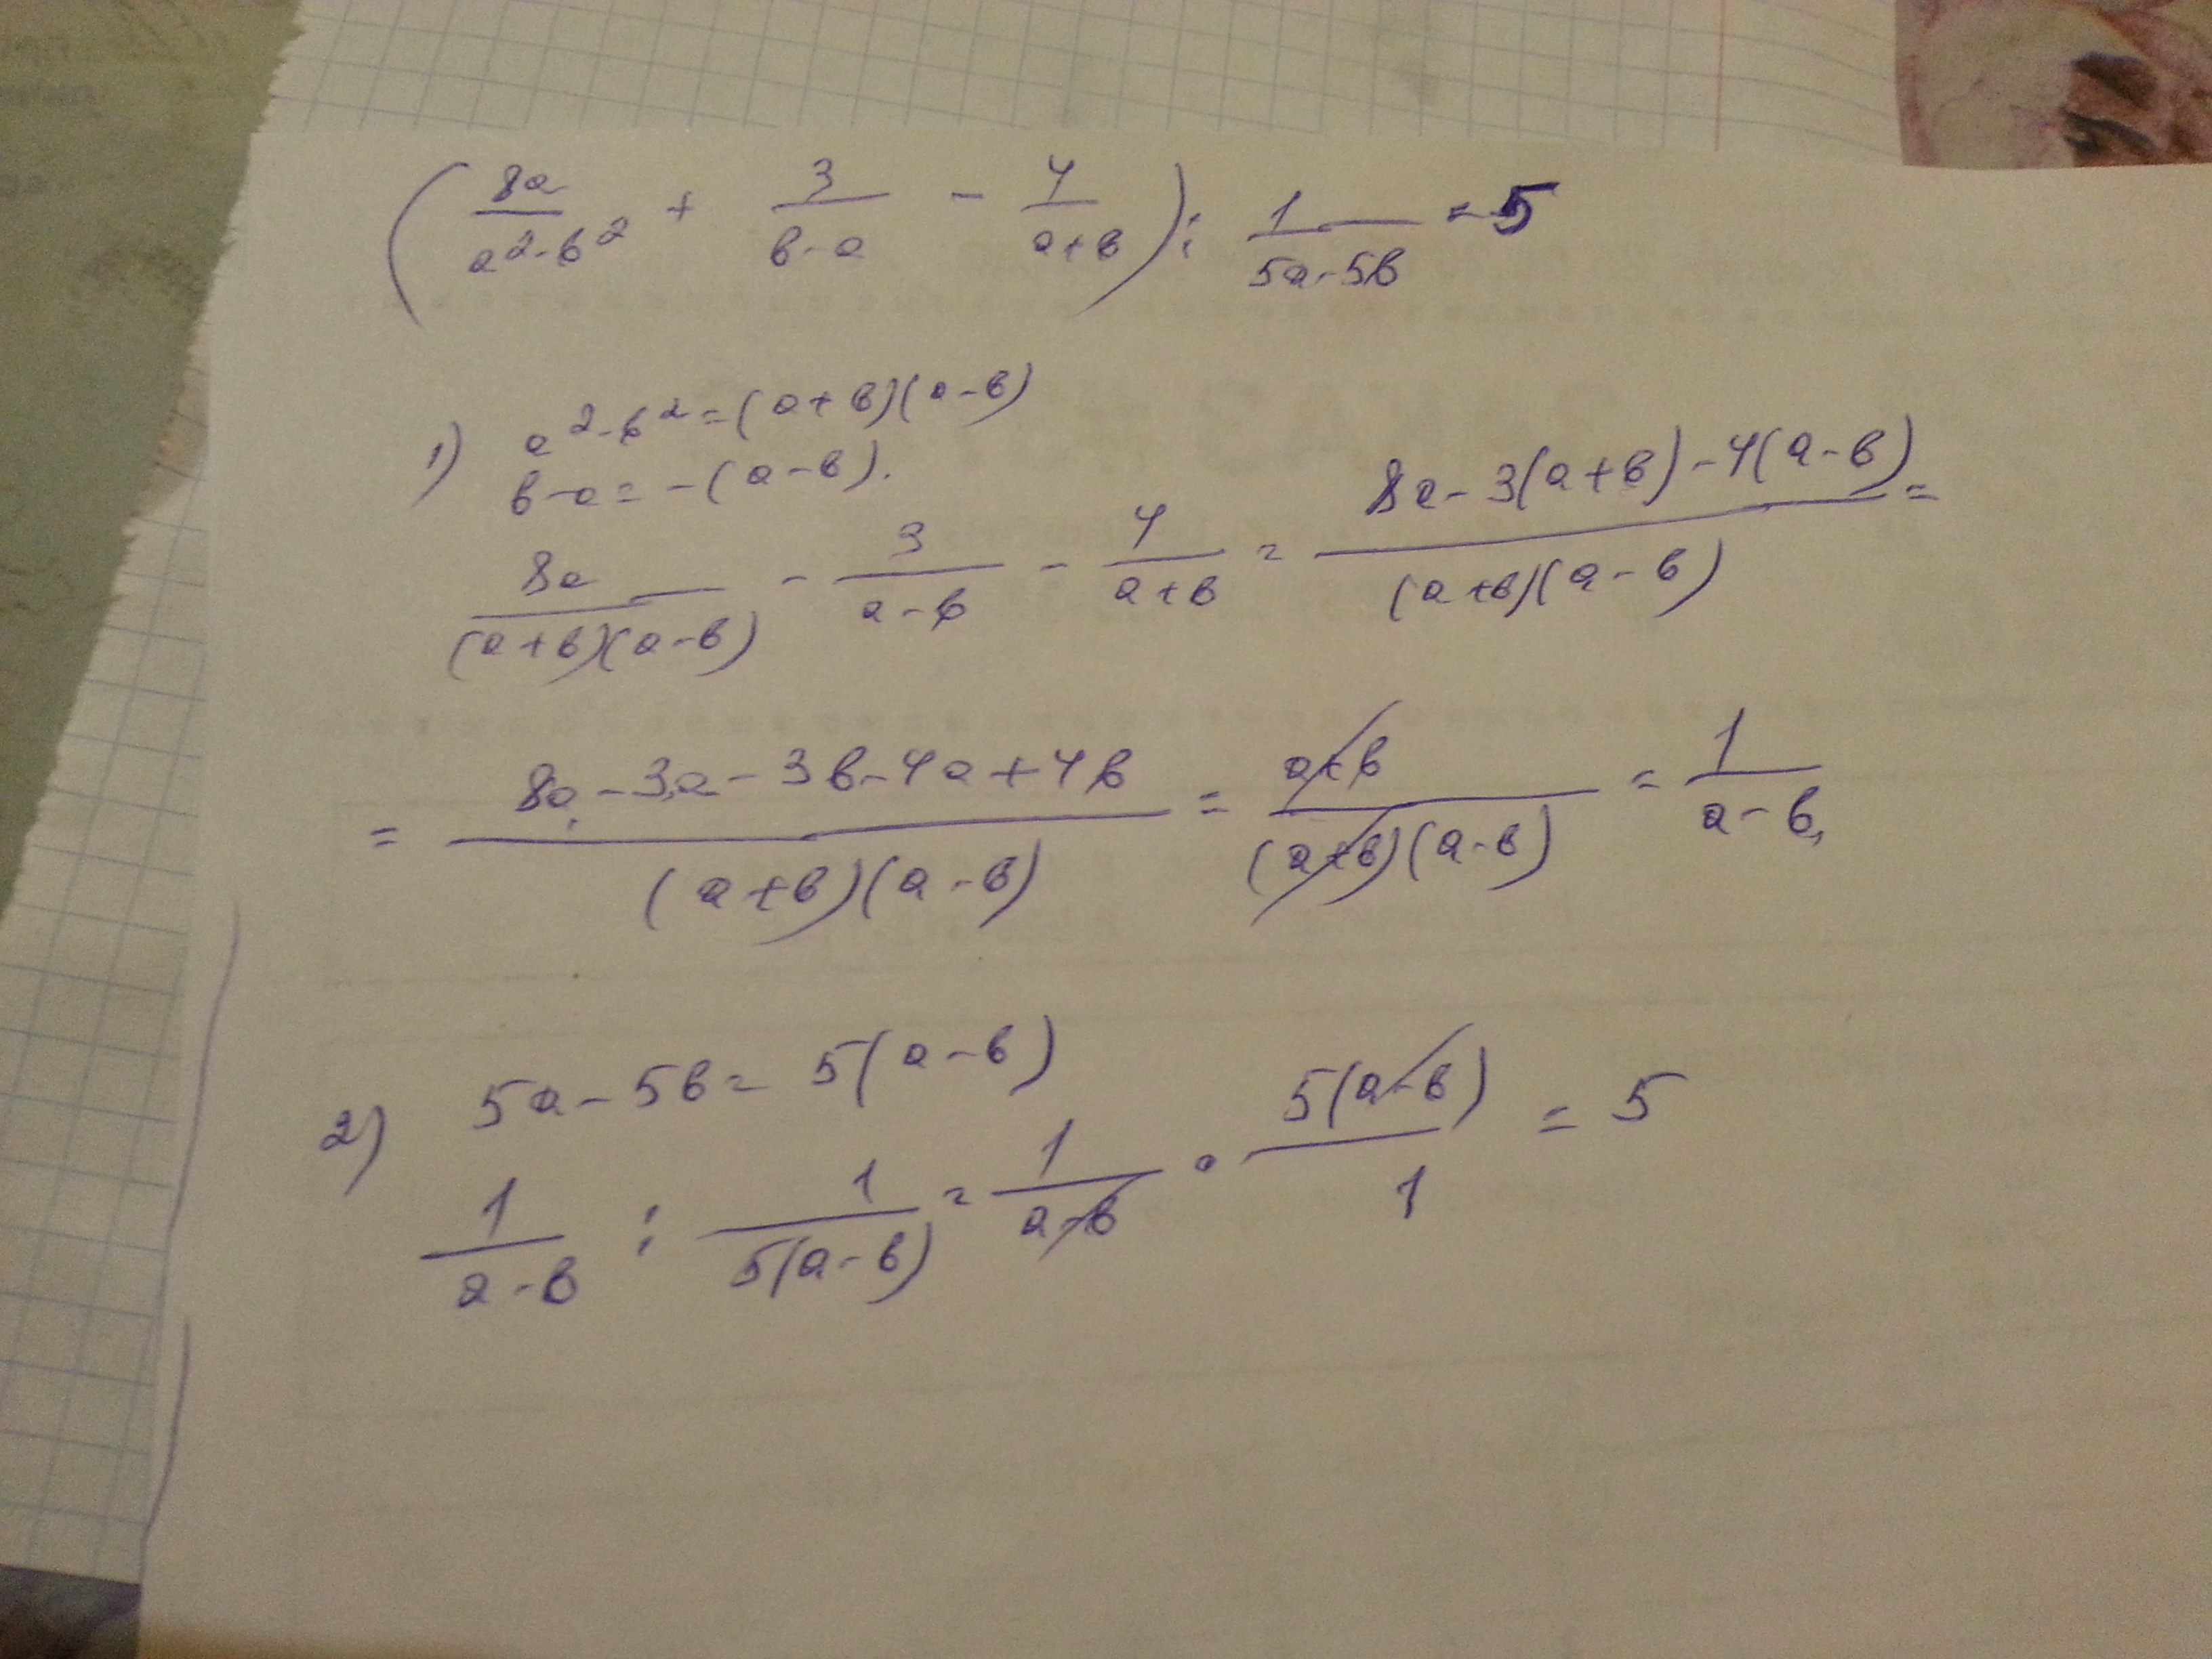 (8a/(a²-b²) + 3/(b-a) - 4/(a+b)) : 1/(5a-5b) = 5
1) a²-b² = (a+b)(a-b)
b-a = -(a-b).
8a/((a+b)(a-b)) - 3/(a-b) - 4/(a+b) = (8a-3(a+b)-4(a-b))/((a+b)(a-b)) =
= (8a-3a-3b-4a+4b)/((a+b)(a-b)) = (a+b)/((a+b)(a-b)) = 1/(a-b),
2) 5a-5b = 5(a-b)
1/(a-b) : 1/(5(a-b)) = 1/(a-b) · 5(a-b)/1 = 5